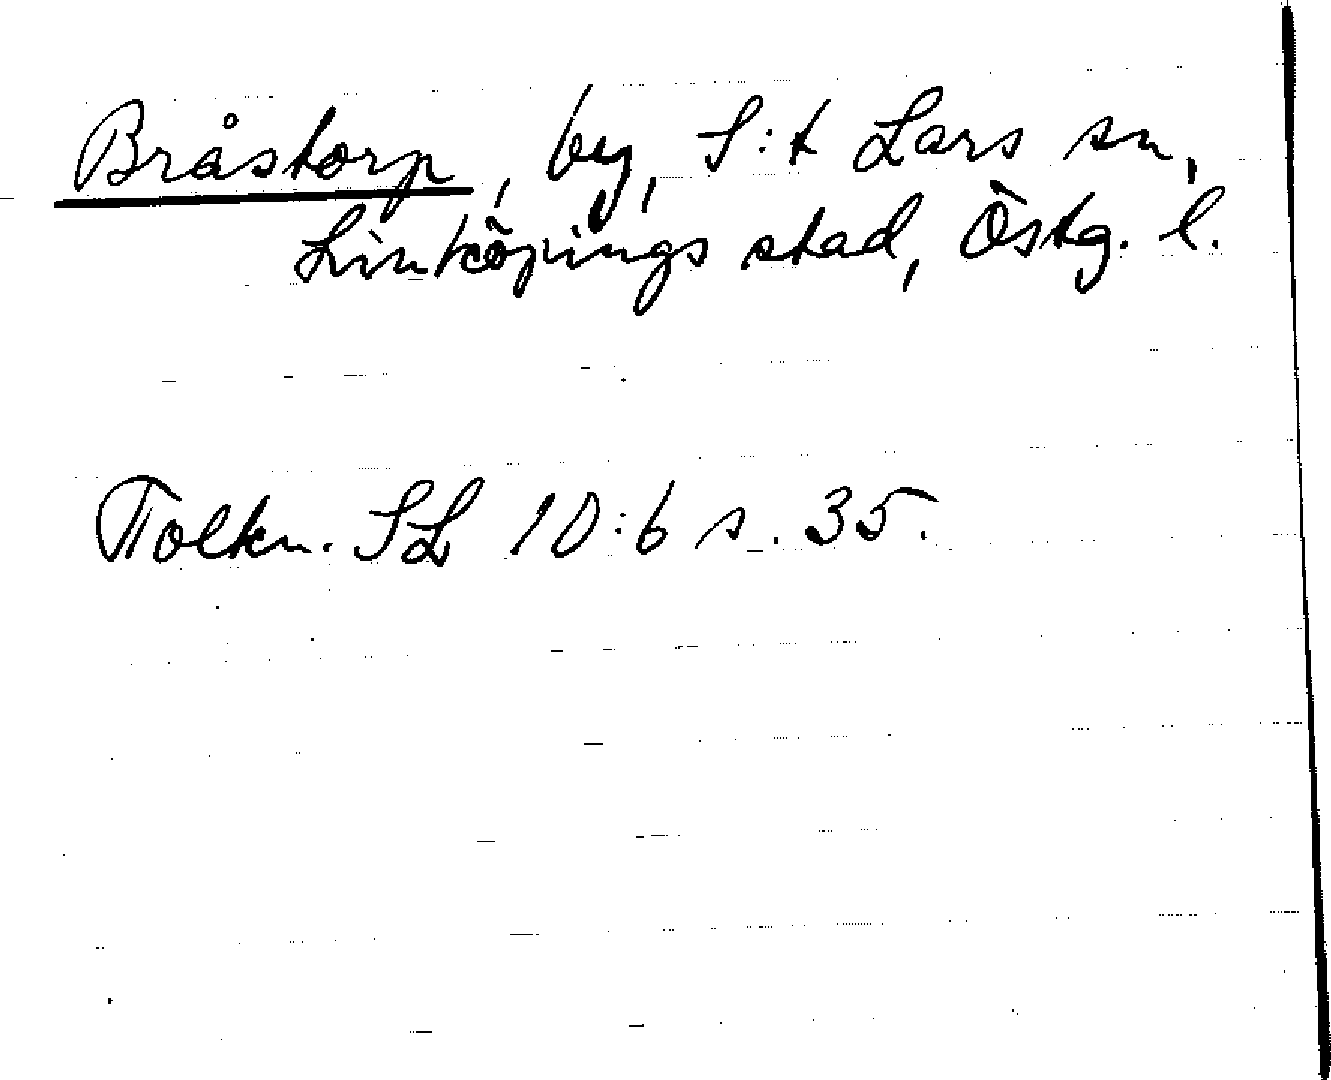 Bråstorp, by, S:t Lars sn,
Linköpings stad, Östg. l.
Tolkn. SL 10:6 s. 35.